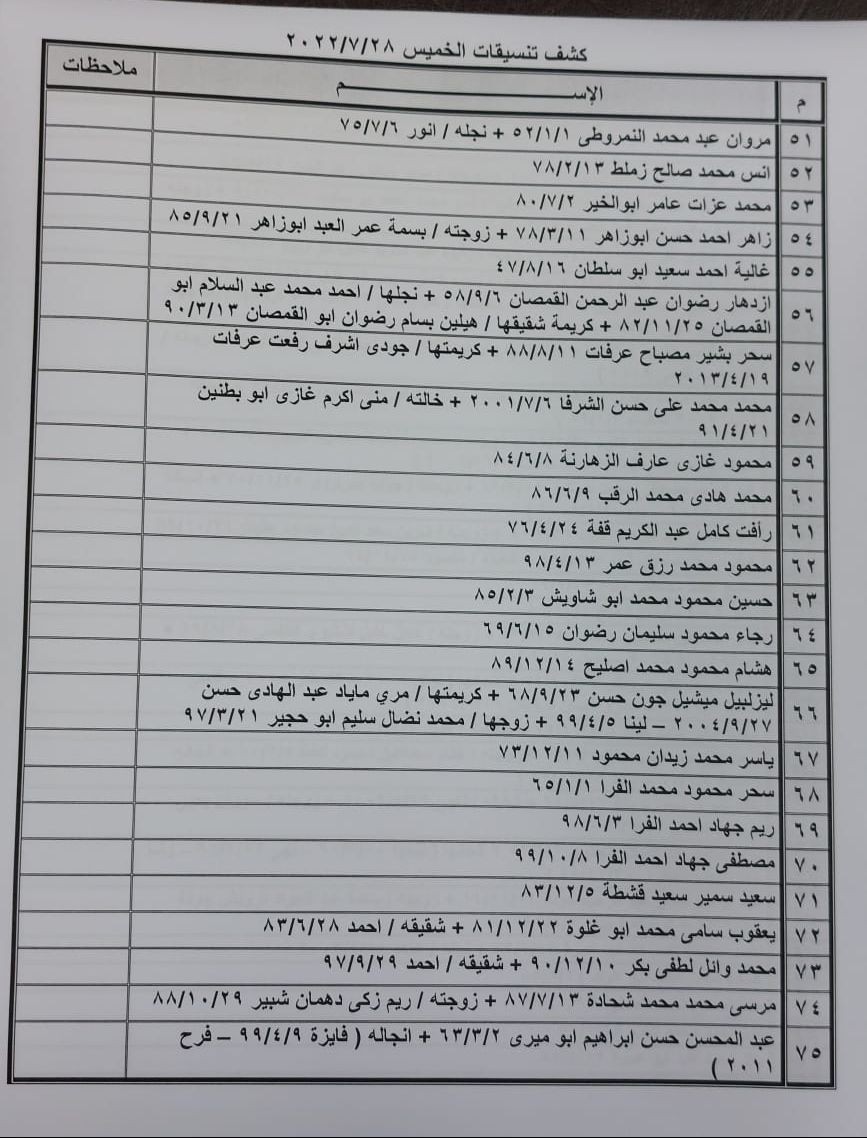 كشف تنسيقات الخميس ٢٠٢٢/٧/٢٨
م الإســـم ملاحظات
٥١ مروان عبد محمد النمروطى ٥٢/١/١ + نجله / انور ٧٥/٧/٦
٥٢ انس محمد صالح زملط ٧٨/٢/١٣
٥٣ محمد عزات عامر ابوالخير ٨٠/٧/٢
٥٤ زاهر احمد حسن ابوزاهر ٧٨/٣/١١ + زوجته / بسمة عمر العبد ابوزاهر ٨٥/٩/٢١
٥٥ غالية احمد سعيد ابو سلطان ٤٧/٨/١٦
٥٦ ازدهار رضوان عبد الرحمن القمصان ٥٨/٩/٦ + نجلها / احمد محمد عبد السلام ابو
القمصان ٨٢/١١/٢٥ + كريمة شقيقها / هيلين بسام رضوان ابو القمصان ٩٠/٣/١٣
٥٧ سحر بشير مصباح عرفات ٨٨/٨/١١ + كريمتها / جودى اشرف رفعت عرفات
٢٠١٣/٤/١٩
٥٨ محمد محمد على حسن الشرفا ٢٠٠١/٧/٦ + خالته / منى اكرم غازى ابو بطنين
٩١/٤/٢١
٥٩ محمود غازى عارف الزهارنة ٨٤/٦/٨
٦٠ محمد هادى محمد الرقب ٨٦/٦/٩
٦١ رأفت كامل عبد الكريم قفة ٧٦/٤/٢٤
٦٢ محمود محمد رزق عمر ٩٨/٤/١٣
٦٣ حسين محمود محمد ابو شاويش ٨٥/٢/٣
٦٤ رجاء محمود سليمان رضوان ٦٩/٦/١٥
٦٥ هشام محمود محمد اصليح ٨٩/١٢/١٤
٦٦ ليزلبيل ميشيل جون حسن ٦٨/٩/٢٣ + كريمتها / مري ماياد عبد الهادى حسن
٢٠٠٤/٩/٢٧ – لينا ٩٩/٤/٥ + زوجها / محمد نضال سليم ابو حجير ٩٧/٣/٢١
٦٧ ياسر محمد زيدان محمود ٧٣/١٢/١١
٦٨ سحر محمود محمد الفرا ٦٥/١/١
٦٩ ريم جهاد احمد الفرا ٩٨/٦/٣
٧٠ مصطفى جهاد احمد الفرا ٩٩/١٠/٨
٧١ سعيد سمير سعيد قشطة ٨٣/١٢/٥
٧٢ يعقوب سامى محمد ابو غلوة ٨١/١٢/٢٢ + شقيقه / احمد ٨٣/٦/٢٨
٧٣ محمد وائل لطفى بكر ٩٠/١٢/١٠ + شقيقه / احمد ٩٧/٩/٢٩
٧٤ مرسى محمد محمد شحادة ٨٧/٧/١٣ + زوجته / ريم زكى دهمان شبير ٨٨/١٠/٢٩
٧٥ عبد المحسن حسن ابراهيم ابو ميرى ٦٣/٣/٢ + انجاله ( فايزة ٩٩/٤/٩ – فرح
٢٠١١ )